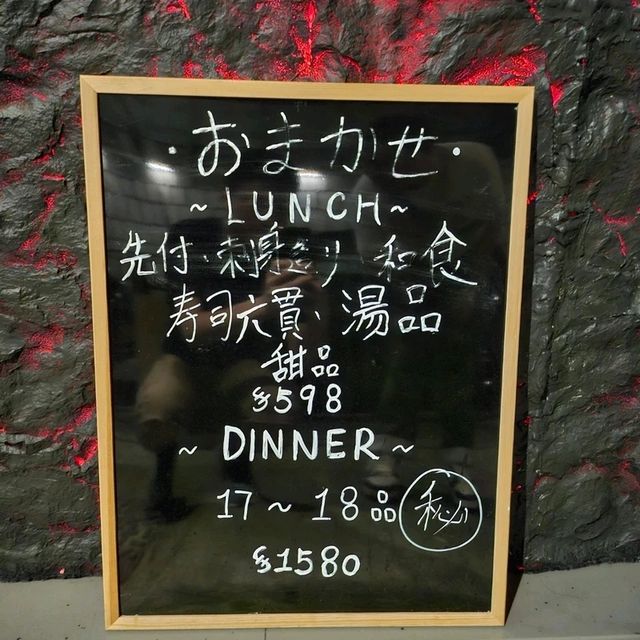 ・おまかせ・
~LUNCH~
先付、刺身造り、和食
寿司六貫、湯品
甜品
$598
~DINNER~
17~18品 秘
$1580